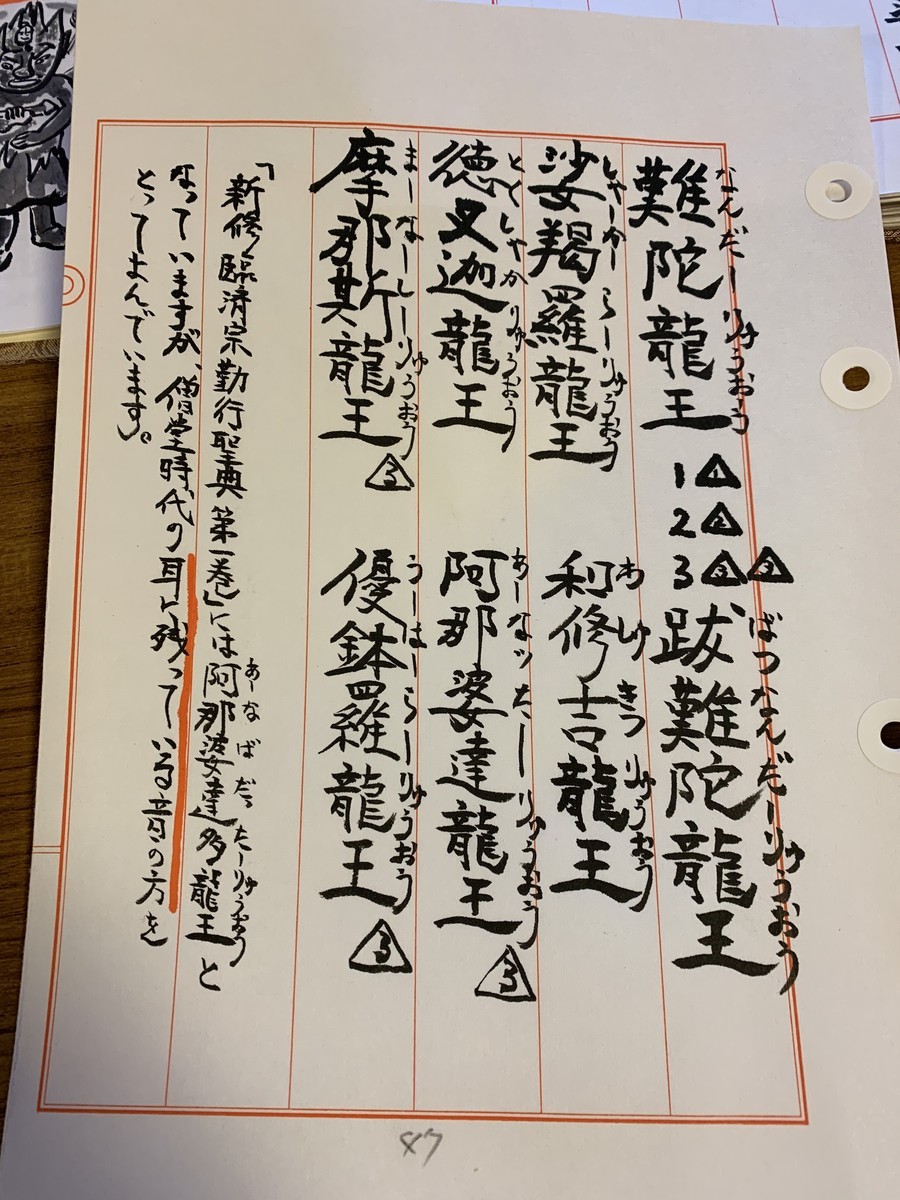 なんだーりゅうおう
難陀龍王
1 1
2 2
3 3 3
ばつなんだーりゅうおう
跋難陀龍王
しゃーかーらーりゅうおう
娑羯羅龍王
わしゅきつりゅうおう
和修吉龍王
とくしゃかりゅうおう
徳叉迦龍王
あーなッたーりゅうおう
阿那婆達龍王 3
まーなーしーりゅうおう
摩那斯龍王 3
うーはーらーりゅうおう
優鉢羅龍王 3
あーなばだったーりゅうおう
「新修臨済宗勤行聖典第一巻」には阿那婆達多龍王と
なっていますが、僧堂時代の耳に残っている音の方を
とってよんでいます。
87